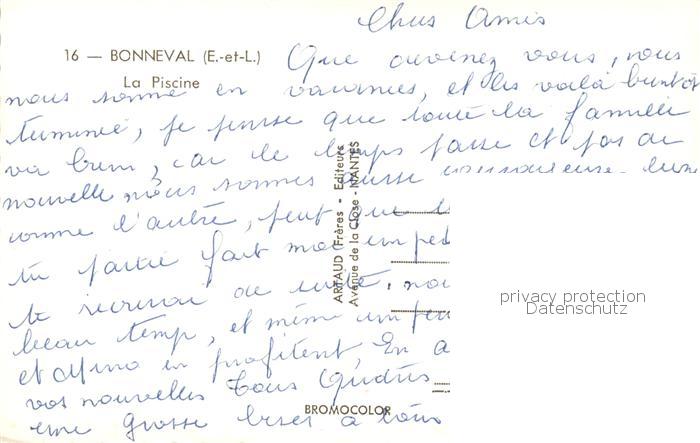 Chers Amis
16 — BONNEVAL (E.-et-L.)
La Piscine
Que devenez vous, nous
nous somme en vacances, et les voilà bientôt
terminée, je pense que toute la famille
va bien, car le temps passe et pas de
nouvelle nous sommes aussi
comme l'autre, peut que
tu partie fait moi un peu
te de suite, nou
beau temp, et même un peu
et en profitent, En a
vos nouvelles tous
une grosse bises a tous
ARTAUD Frères - Editeurs
Avenue de la Close - NANTES
BROMOCOLOR
privacy protection
Datenschutz